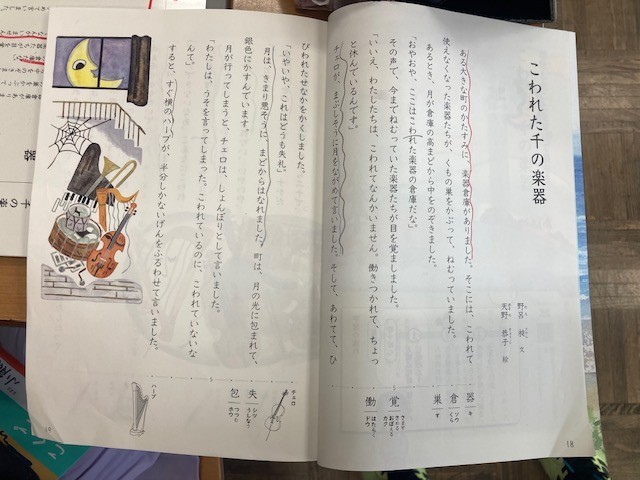 こわれた千の楽器
野呂 昶 文
天野 恭子 絵
ある大きな町のかたすみに、楽器倉庫がありました。そこには、こわれて
使えなくなった楽器たちが、くもの巣をかぶって、ねむっていました。
あるとき、月が倉庫の高まどから中をのぞきました。
「おやおや、ここはこわれた楽器の倉庫だな。」
その声で、今までねむっていた楽器たちが目を覚ましました。
「いいえ、わたしたちは、こわれてなんかいません。働きつかれて、ちょっ
と休んでいるんです。」
チェロが、まぶしそうに月をながめて言いました。そして、あわてて、ひ
器 キ
倉 ソウ くら
巣 す
覚 さます さめる おぼえる カク
働 はたらく ドウ
18
びわれたせなかをかくしました。
「いやいや、これはどうも失礼。」
月は、きまり悪そうに、まどからはなれました。町は、月の光に包まれて、
銀色にかすんでいます。
月が行ってしまうと、チェロは、しょんぼりとして言いました。
「わたしは、うそを言ってしまった。こわれているのに、こわれていないな
んて。」
すると、すぐ横のハープが、半分しかないげんをふるわせて言いました。
チェロ
失 シツ うしなう
包 つつむ ホウ
ハープ
19
器
千の楽